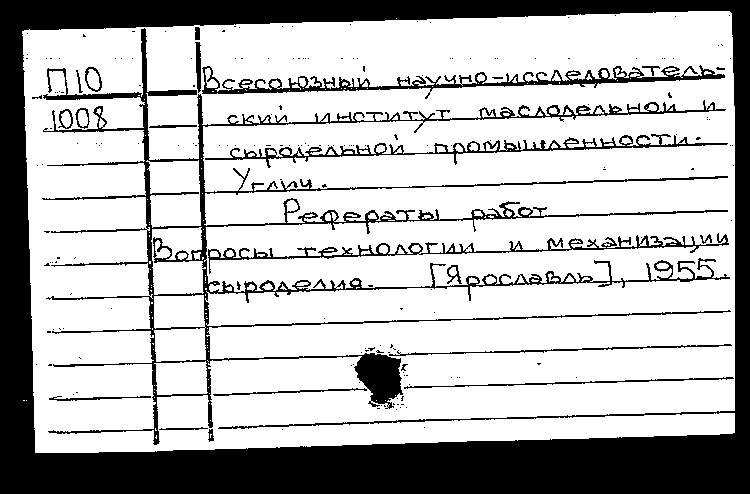 П10 Всесоюзный научно-исследователь-
1008 ский институт маслодельной и
сыродельной промышленности.
Углич.
Рефераты работ
Вопросы технологии и механизации
сыроделия. [Ярославль], 1955.